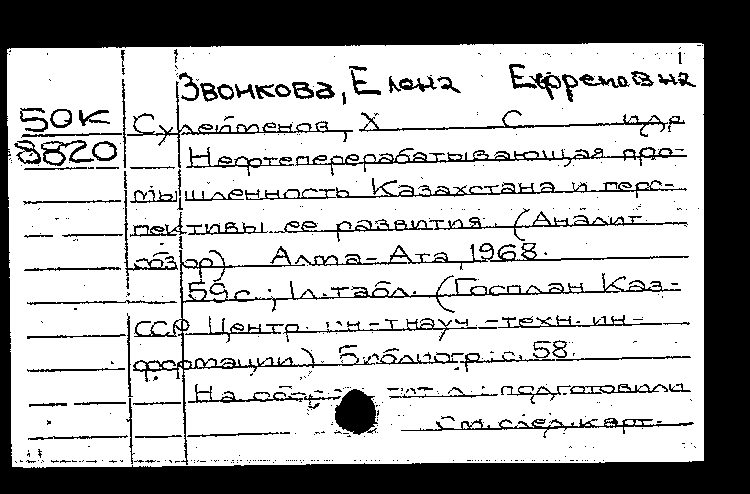 Звонкова, Елена Ефремовна
50К Сулейменов, Х С и др
8820 Нефтеперерабатывающая про-
мышленность Казахстана и перс-
пективы ее развития. (Аналит
обзор) Алма-Ата, 1968.
59с.; 1л.табл. (Госплан Каз-
ССР Центр. ин-т науч.-техн. ин-
формации). Библиогр: с. 58.
На обор. тит л.: подготовили
См. след. карт.